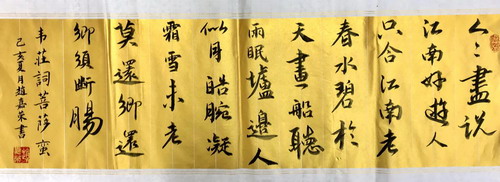 人々盡説
江南好遊人
只合江南老
春水碧於
天畫船聽
雨眠壚邊人
似月皓腕凝
霜雪未老
莫還鄉還
鄉須斷腸
韦莊詞菩薩蠻
己亥夏月趙嘉榮書